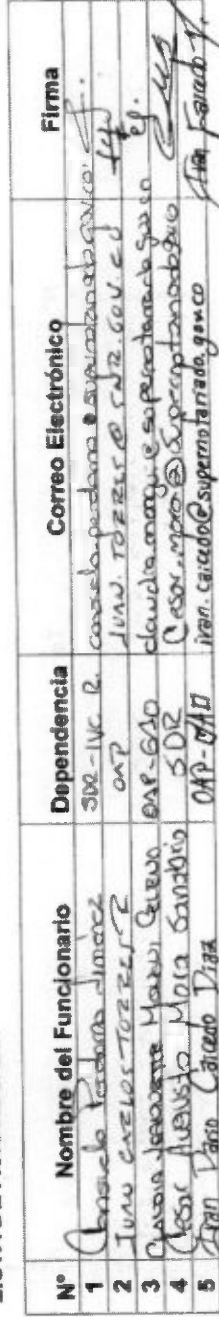 N° Nombre del Funcionario Dependencia Correo Electrónico Firma
1 Consuelo Perdomo Jiménez SDR-IVC R. consuelo.perdomo@supernotariado.gov.co
2 JUAN CARLOS TORRES R OAP JUAN.TORRES@SNR.GOV.CO
3 CLAUDIA JEANNETTE MANZUR OAP-GAD claudia.manzur@supernotariado.gov.co
4 Cesar Augusto Mora Sanabria SDR Cesar.mora@supernotariado.gov.co
5 Ivan Dario Caicedo Diaz OAP-GAD ivan.caicedo@supernotariado.gov.co Ivan Caicedo